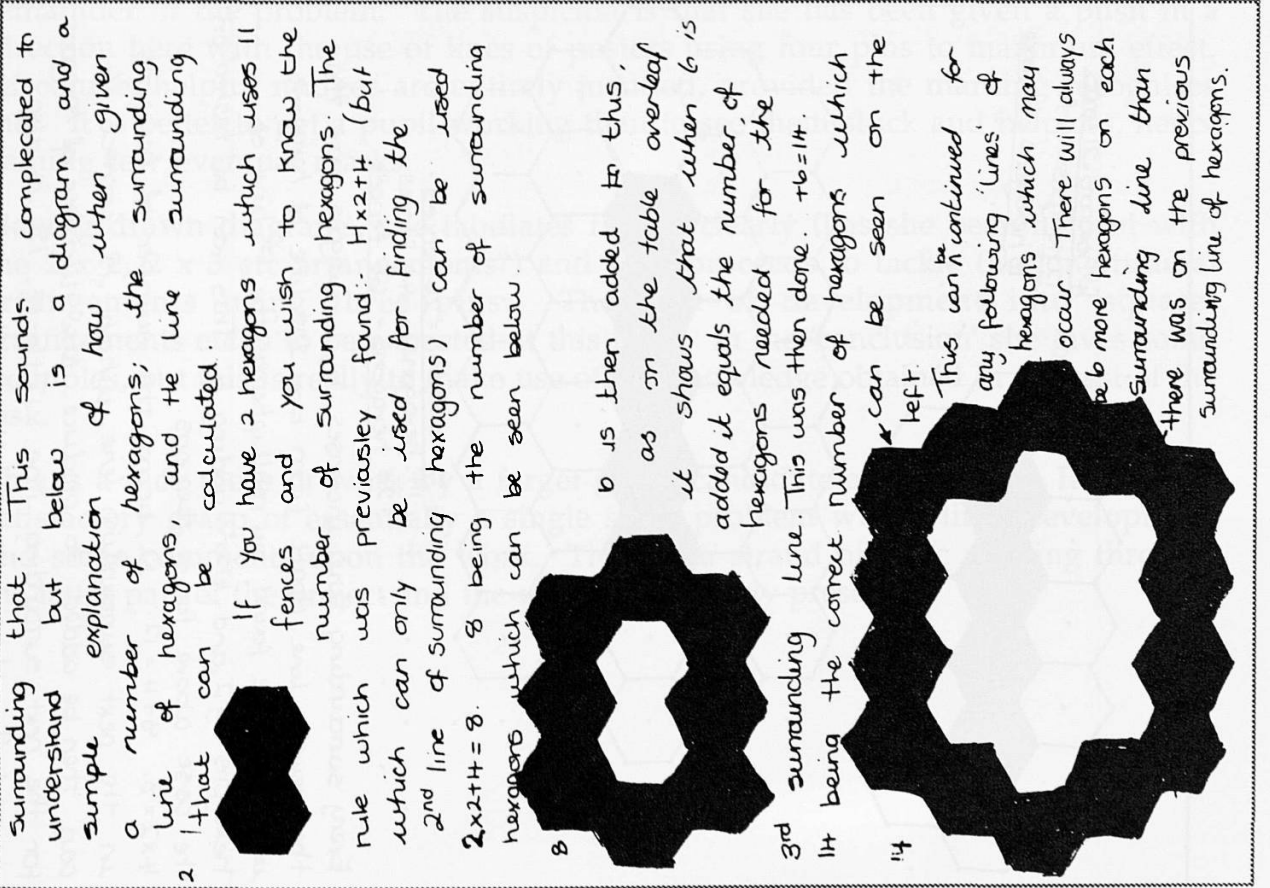 surrounding that This sounds complecated to
understand but below is a diagram and a
simple explanation of how when given
a number of hexagons, the surrounding
line of hexagons and the line surrounding
that can be calculated
2
If you have 2 hexagons which uses 11
fences and you wish to know the
number of surounding hexagons. The
rule which was previousley found: H×2+4, but
which can only be used for finding the
2nd line of surounding hexagons can be used
2×2+4=8. 8 being the number of surrounding
hexagons which can be seen below
8
6 is then added to this,
as on the table overleaf
it shows that when 6 is
added it equals the number of
hexagons needed for the
3rd surrounding line. This was then done +6=14
14 being the correct number of hexagons which
14
can be seen on the
left.
This can continued for
any following lines of
hexagons which may
be placed. There will always
be 6 more hexagons on each
surrounding line than
there was on the previous
surrounding line of hexagons.